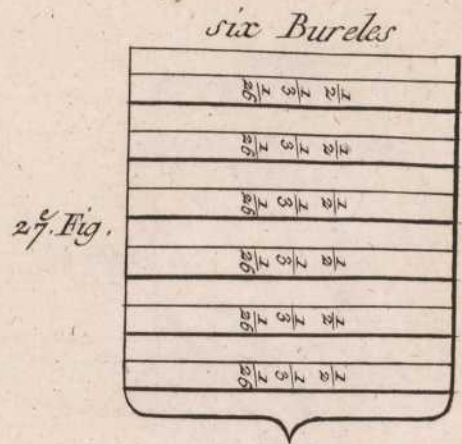 six Bureles
27.e Fig.
1/2 1/3 1/26
1/2 1/3 1/26
1/2 1/3 1/26
1/2 1/3 1/26
1/2 1/3 1/26
1/2 1/3 1/26